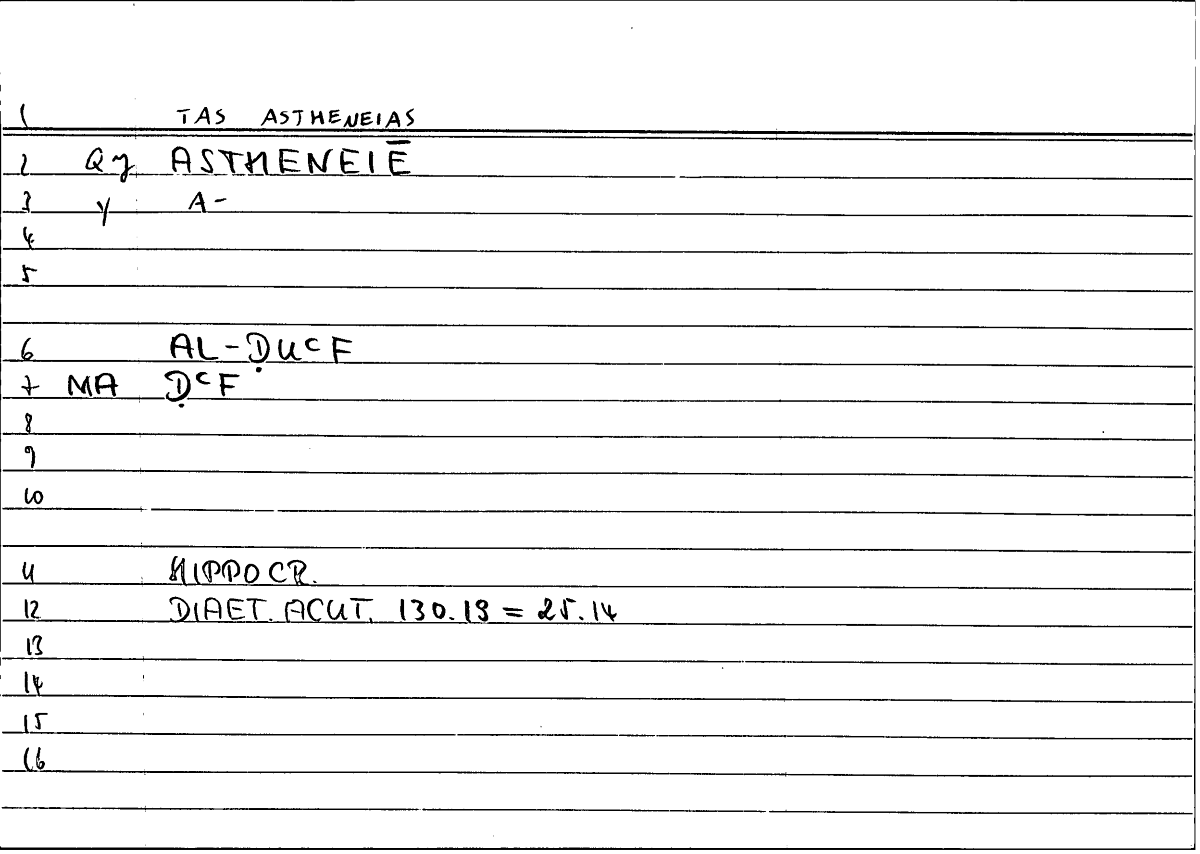 1 TAS ASTHENEIAS
2 Qy ASTHENEIĒ
3 y A-
4
5
6 AL-ḌUᶜF
7 MA ḌᶜF
8
9
10
11 HIPPOCR.
12 DIAET. ACUT. 130.19 = 25.14
13
14
15
16